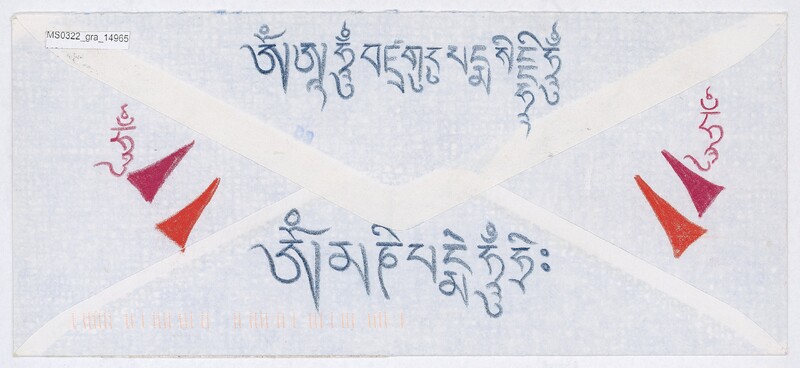 MS0322_gra_14965
ༀ་ཨཱཿཧཱུྃ་བཛྲ་གུ་རུ་པདྨ་སིདྡྷི་ཧཱུྃ
ༀ་མ་ཎི་པདྨེ་ཧཱུྃ་ཧྲཱིཿ